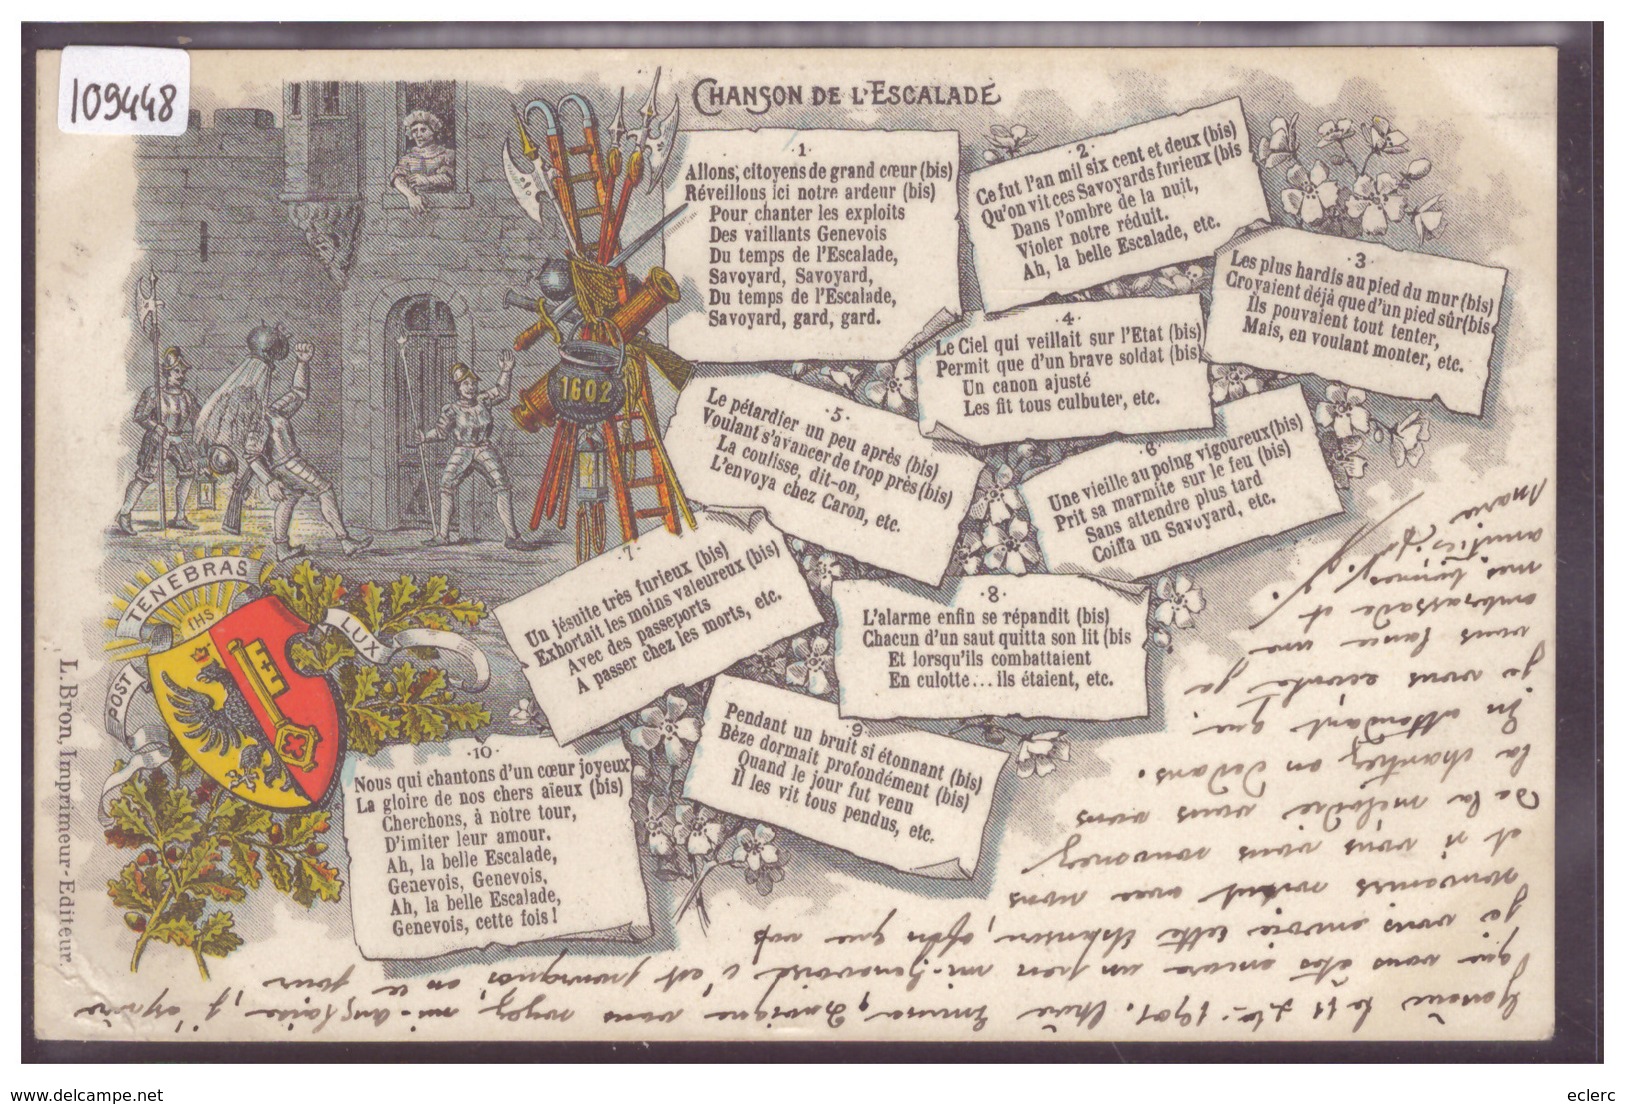 109448
CHANSON DE L'ESCALADE
·1·
Allons, citoyens de grand cœur (bis)
Réveillons ici notre ardeur (bis)
Pour chanter les exploits
Des vaillants Genevois
Du temps de l'Escalade,
Savoyard, Savoyard,
Du temps de l'Escalade,
Savoyard, gard, gard.
·2·
Ce fut l'an mil six cent et deux (bis)
Qu'on vit ces Savoyards furieux (bis
Dans l'ombre de la nuit,
Violer notre réduit.
Ah, la belle Escalade, etc.
·3·
Les plus hardis au pied du mur (bis)
Croyaient déjà que d'un pied sûr (bis
Ils pouvaient tout tenter,
Mais, en voulant monter, etc.
·4·
Le Ciel qui veillait sur l'Etat (bis)
Permit que d'un brave soldat (bis)
Un canon ajusté
Les fit tous culbuter, etc.
·5·
Le pétardier un peu après (bis)
Voulant s'avancer de trop près (bis)
La coulisse, dit-on,
L'envoya chez Caron, etc.
·6·
Une vieille au poing vigoureux (bis)
Prit sa marmite sur le feu (bis)
Sans attendre plus tard
Coiffa un Savoyard, etc.
·7·
Un jésuite très furieux (bis)
Exhortait les moins valeureux (bis)
Avec des passeports
A passer chez les morts, etc.
·8·
L'alarme enfin se répandit (bis)
Chacun d'un saut quitta son lit (bis
Et lorsqu'ils combattaient
En culotte... ils étaient, etc.
·9·
Pendant un bruit si étonnant (bis)
Bèze dormait profondément (bis)
Quand le jour fut venu
Il les vit tous pendus, etc.
·10·
Nous qui chantons d'un cœur joyeux
La gloire de nos chers aïeux (bis)
Cherchons, à notre tour,
D'imiter leur amour.
Ah, la belle Escalade,
Genevois, Genevois,
Ah, la belle Escalade,
Genevois, cette fois!
1602
POST TENEBRAS LUX
IHS
L. Bron, Imprimeur-Editeur.
le 11 1901. Chère Emma, Quoique vous soyez mi-anglaise, j'espère
que vous êtes encore un peu mi-genevoise c'est pourquoi, en ce jour,
je vous envoie cette chanson, afin que vos
souvenirs restent avec nous
et si vous vous souvenez
de la mélodie vous nous
la chantiez en dedans.
En attendant que
je vous écoute je
vous lance une
embrassade et
mes bonnes
amitiés
Marie
delcampe.net
eclerc